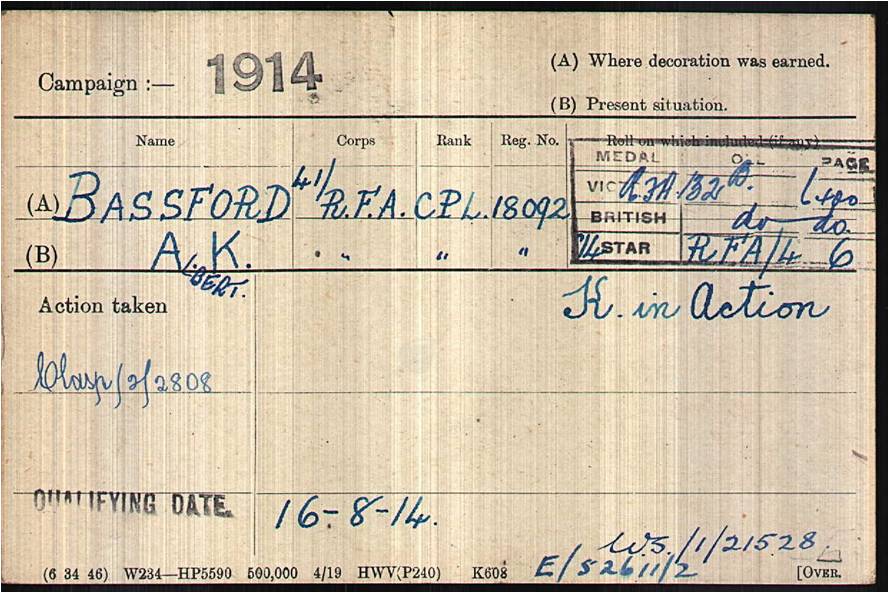 Campaign :— 1914
(A) Where decoration was earned.
(B) Present situation.
Name Corps Rank Reg. No. Roll on which included (if any)
MEDAL PAGE
(A) BASSFORD 41/R.F.A. CPL. 18092
VIC R.F.A./132 B.
BRITISH do do.
(B) A. K. " " "
14 STAR R.F.A/4 6
ALBERT.
Action taken
K. in Action
Clasp/2/2808
QUALIFYING DATE. 16-8-14.
W.S./1/21528
E/52611/2
(6 34 46) W234—HP5590 500,000 4/19 HWV(P240) K608
[OVER.